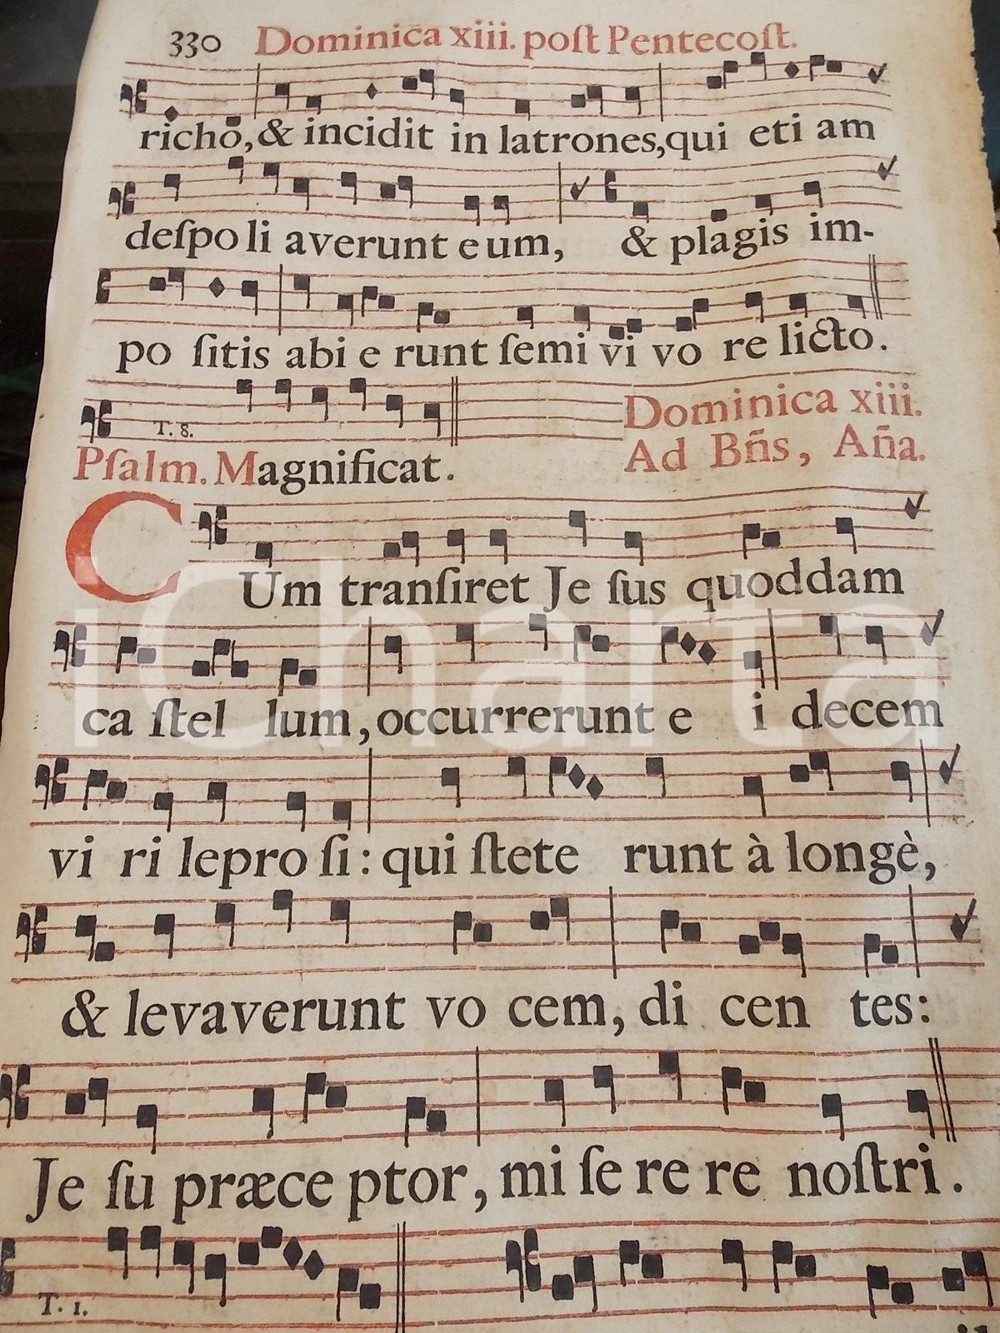 330 Dominica xiii. poſt Pentecoſt.
richo, & incidit in latrones, qui eti am
deſpo li averunt e um, & plagis im-
po ſitis abi e runt ſemi vi vo re licto.
T. 8.
Dominica xiii.
Pſalm. Magnificat.
Ad Bñs, Aña.
CUm tranſiret Je ſus quoddam
ca ſtel lum, occurrerunt e i decem
vi ri lepro ſi: qui ſtete runt à longè,
& levaverunt vo cem, di cen tes:
Je ſu præce ptor, mi ſe re re noſtri.
T. 1.
iCharta